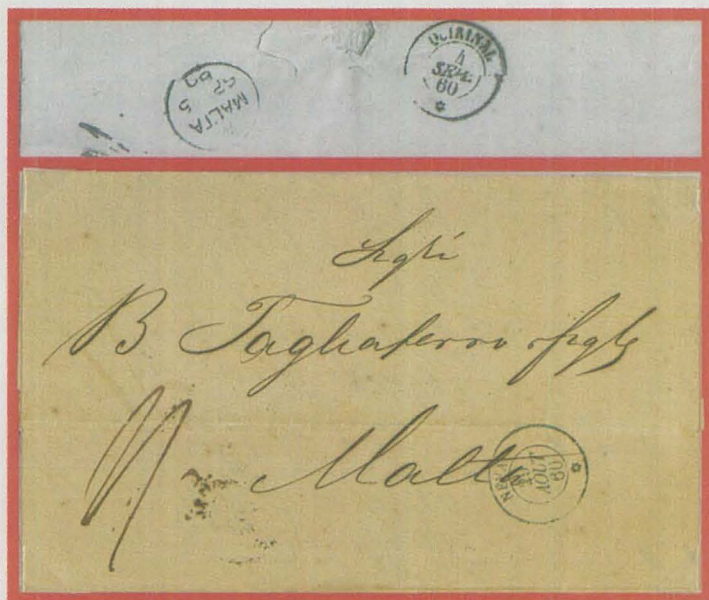 QUIRINAL
4
SEPT.
60
MALTA
SP 5
60
Sigri
B Tagliaferro e figli
Malta
AOUT
60